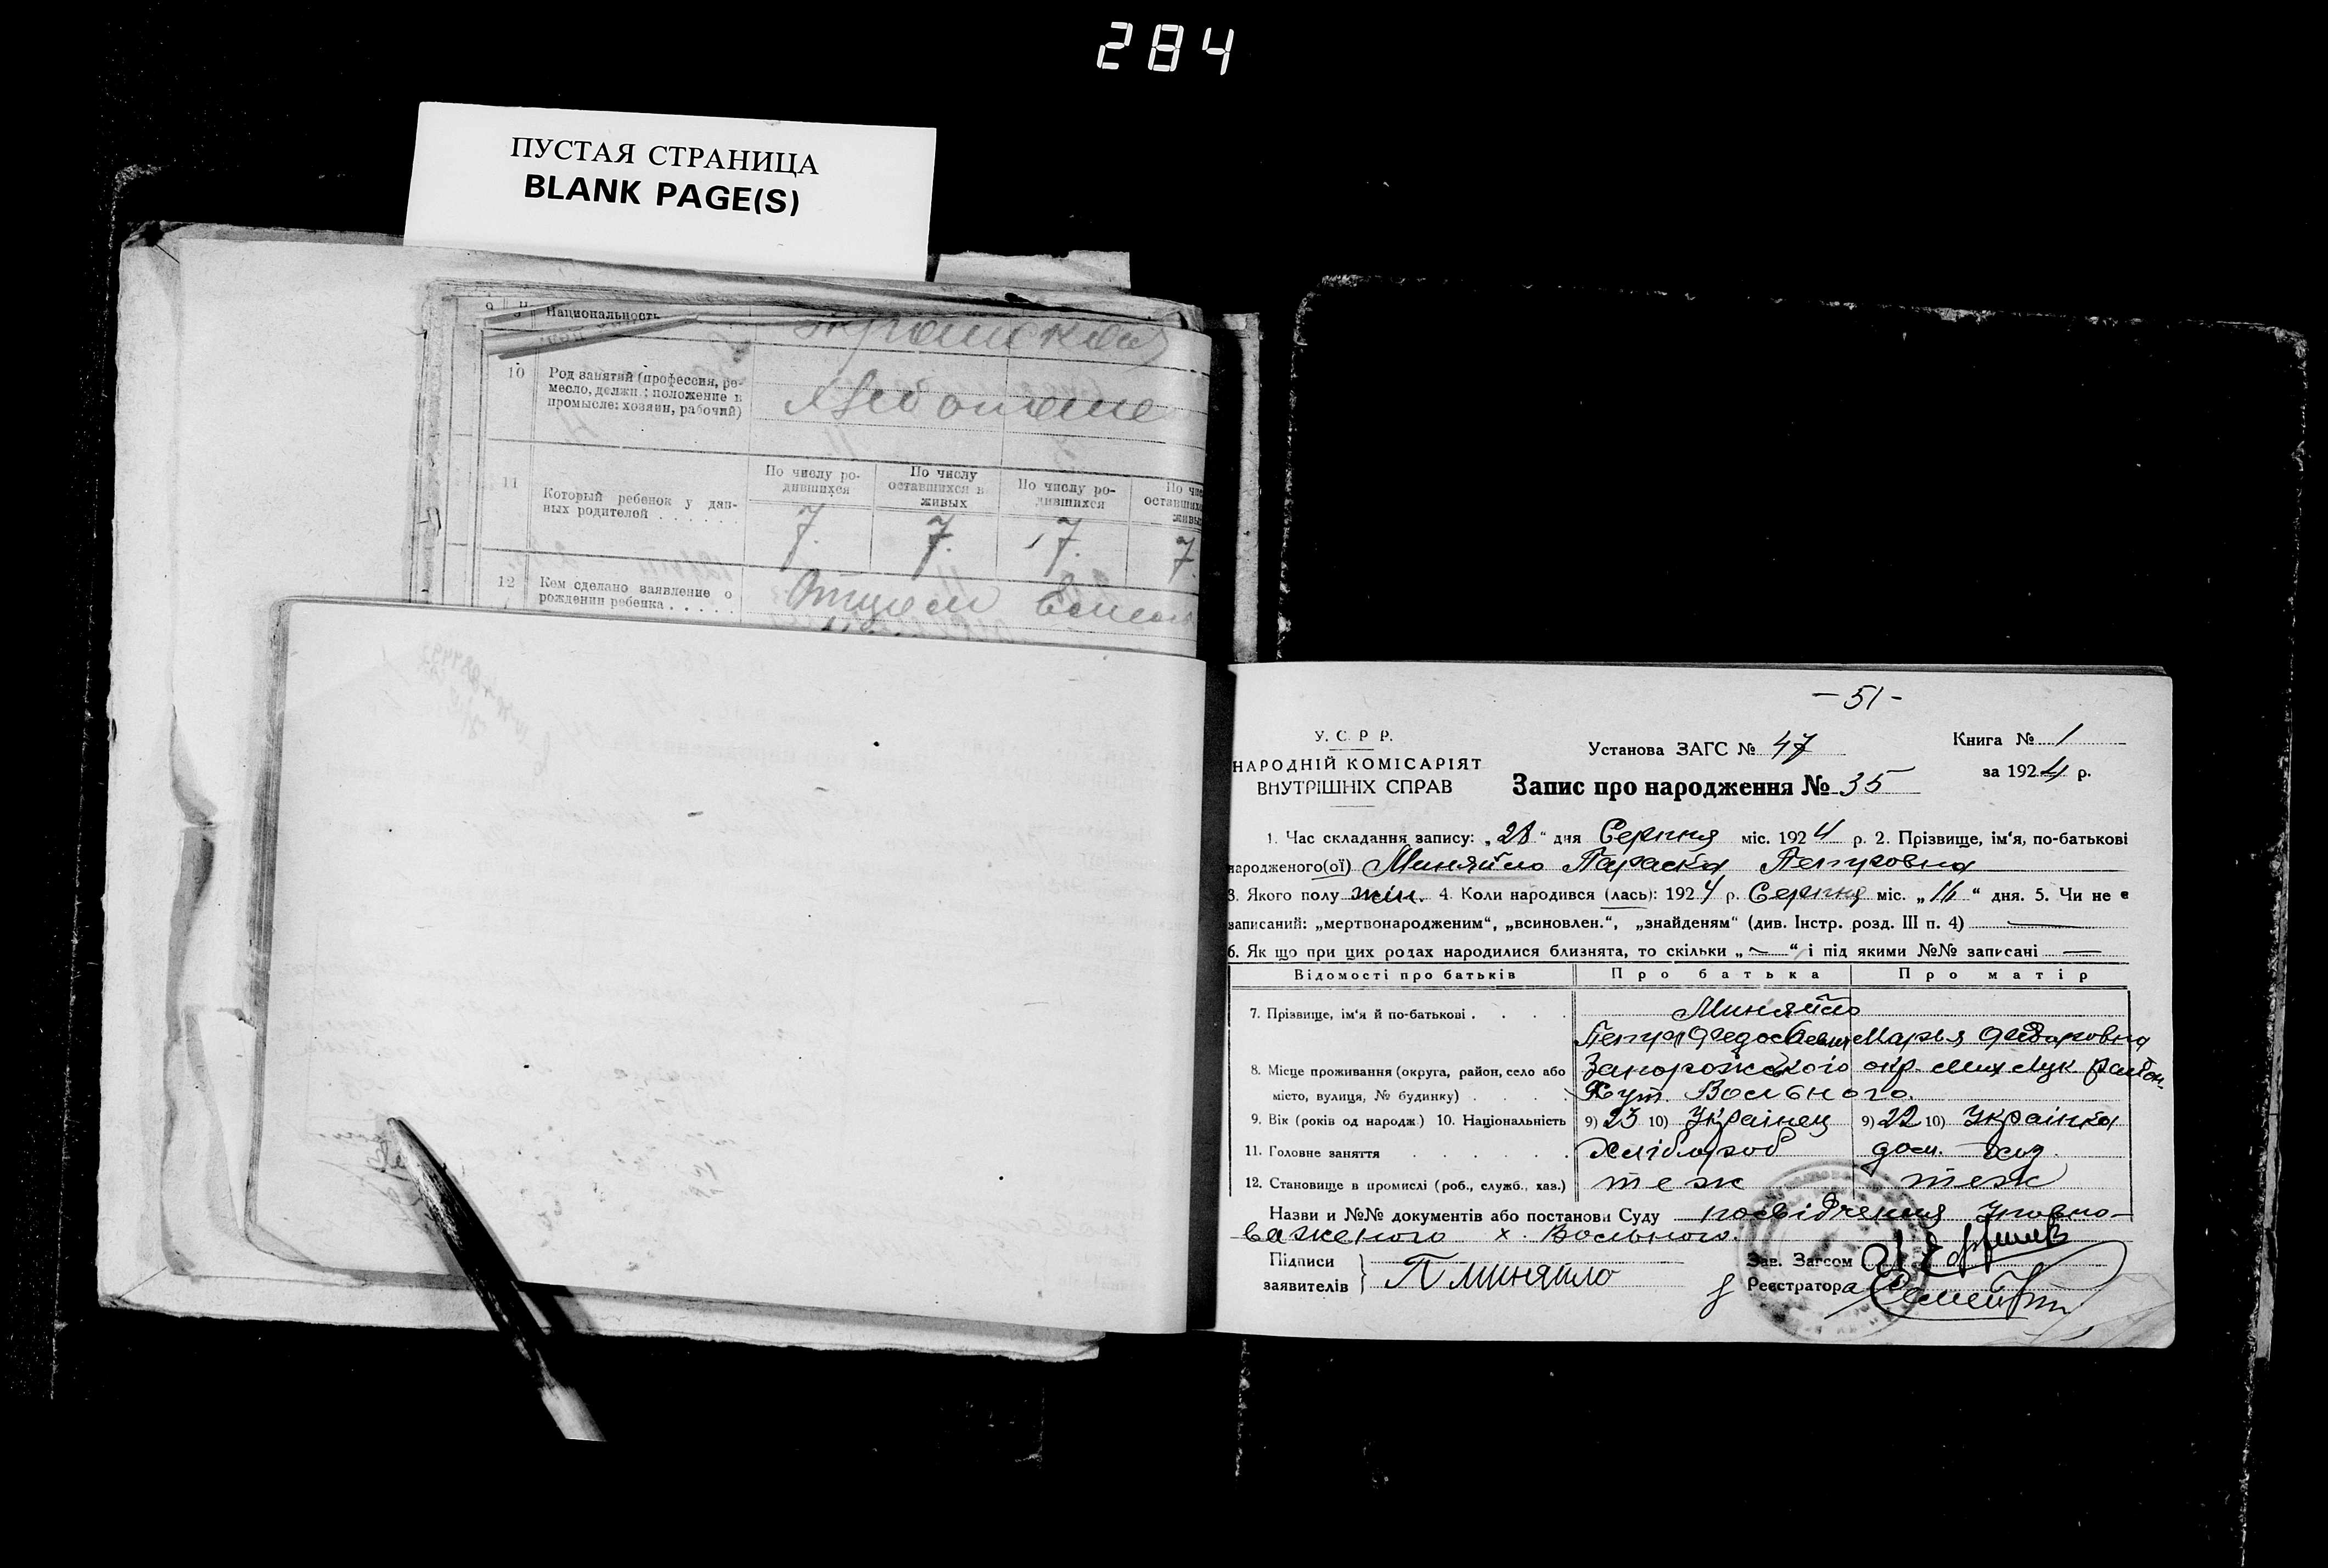 284
ПУСТАЯ СТРАНИЦА
BLANK PAGE(S)
9 Национальность
10 Род занятий (профессия, ре-
месло, должн.; положение в
промысле: хозяин, рабочий)
11 Который ребенок у дан-
ных родителей
По числу ро-
дившихся
По числу
оставшихся в
живых
По числу ро-
дившихся
По чис
оставшихс
живы
7. 7. 7. 7.
12 Кем сделано заявление о
рождении ребенка
Отцом
- 51 -
У. С. Р. Р.
НАРОДНІЙ КОМІСАРІЯТ
ВНУТРІШНІХ СПРАВ
Установа ЗАГС № 47
Книга № 1
за 1924 р.
Запис про народження № 35
1. Час складання запису: „28“ дня Серпня міс. 1924 р. 2. Прізвище, ім‘я, по-батькові
народженого(ої) Миняйло Параска Петровна
3. Якого полу жін. 4. Коли народився (лась): 1924 р. Серпня міс. „16“ дня. 5. Чи не є
записаний: „мертвонародженим“, „всиновлен.“, „знайденям“ (див. Інстр. розд. III п. 4)
6. Як що при цих родах народилися близнята, то скільки „—“ і під якими №№ записані —
Відомості про батьків Про батька Про матір
7. Прізвище, ім‘я й по-батькові Миняйло
Петр Федосеевич Марья Федоровна
8. Місце проживання (округа, район, село або Запорожского окр. Мих Лук район.
місто, вулиця, № будинку) Хут. Вольного.
9. Вік (років од народж) 10. Національність 9) 23 10) Українец 9) 22 10) Українка
11. Головне заняття Хлібороб дом. хоз.
12. Становище в промислі (роб., служб., хаз.) теж теж
Назви и №№ документів або постанови Суду посвідчення Уповно-
важеного х. Вольного.
Підписи
заявителів } П Миняйло
Зав. Загсом
Реєстратора